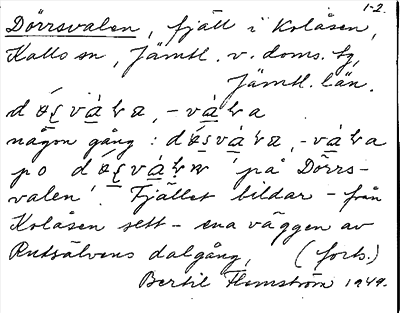 1-2.
Dörrsvalen, fjäll i Kolåsen,
Kalls sn, Jämtl. v. doms. sg,
Jämtl. län.
någon gång :
po 'på Dörrs-
valen'. Fjället bildar – från
Kolåsen sett – ena väggen av
Rutsälvens dalgång, (forts.)
Bertil Flemström 1949.